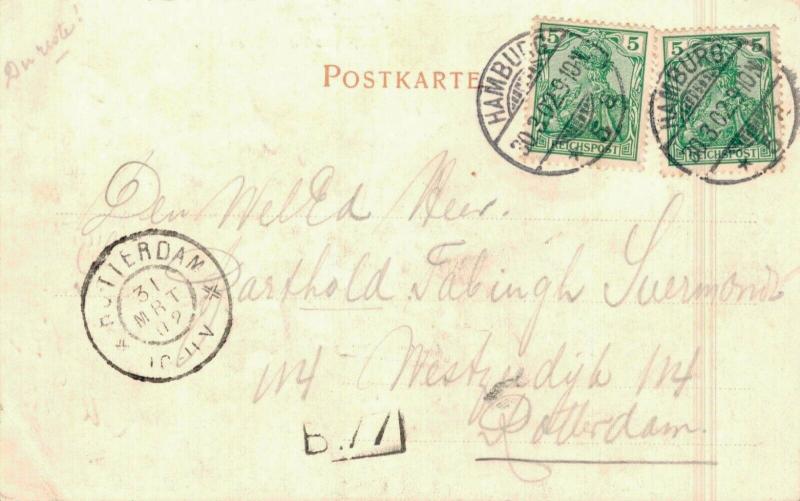 Du reste!
POSTKARTE
5 5
REICHSPOST
5 5
REICHSPOST
HAMBURG
30.3.02.9-10N.
HAMBURG
30.3.02.9-10N.
Den WelEd Heer.
Barthold Fabingh Suermondt
114 Westzeedijk 114
Rotterdam.
ROTTERDAM
31
MRT
02
10-11V
B.77